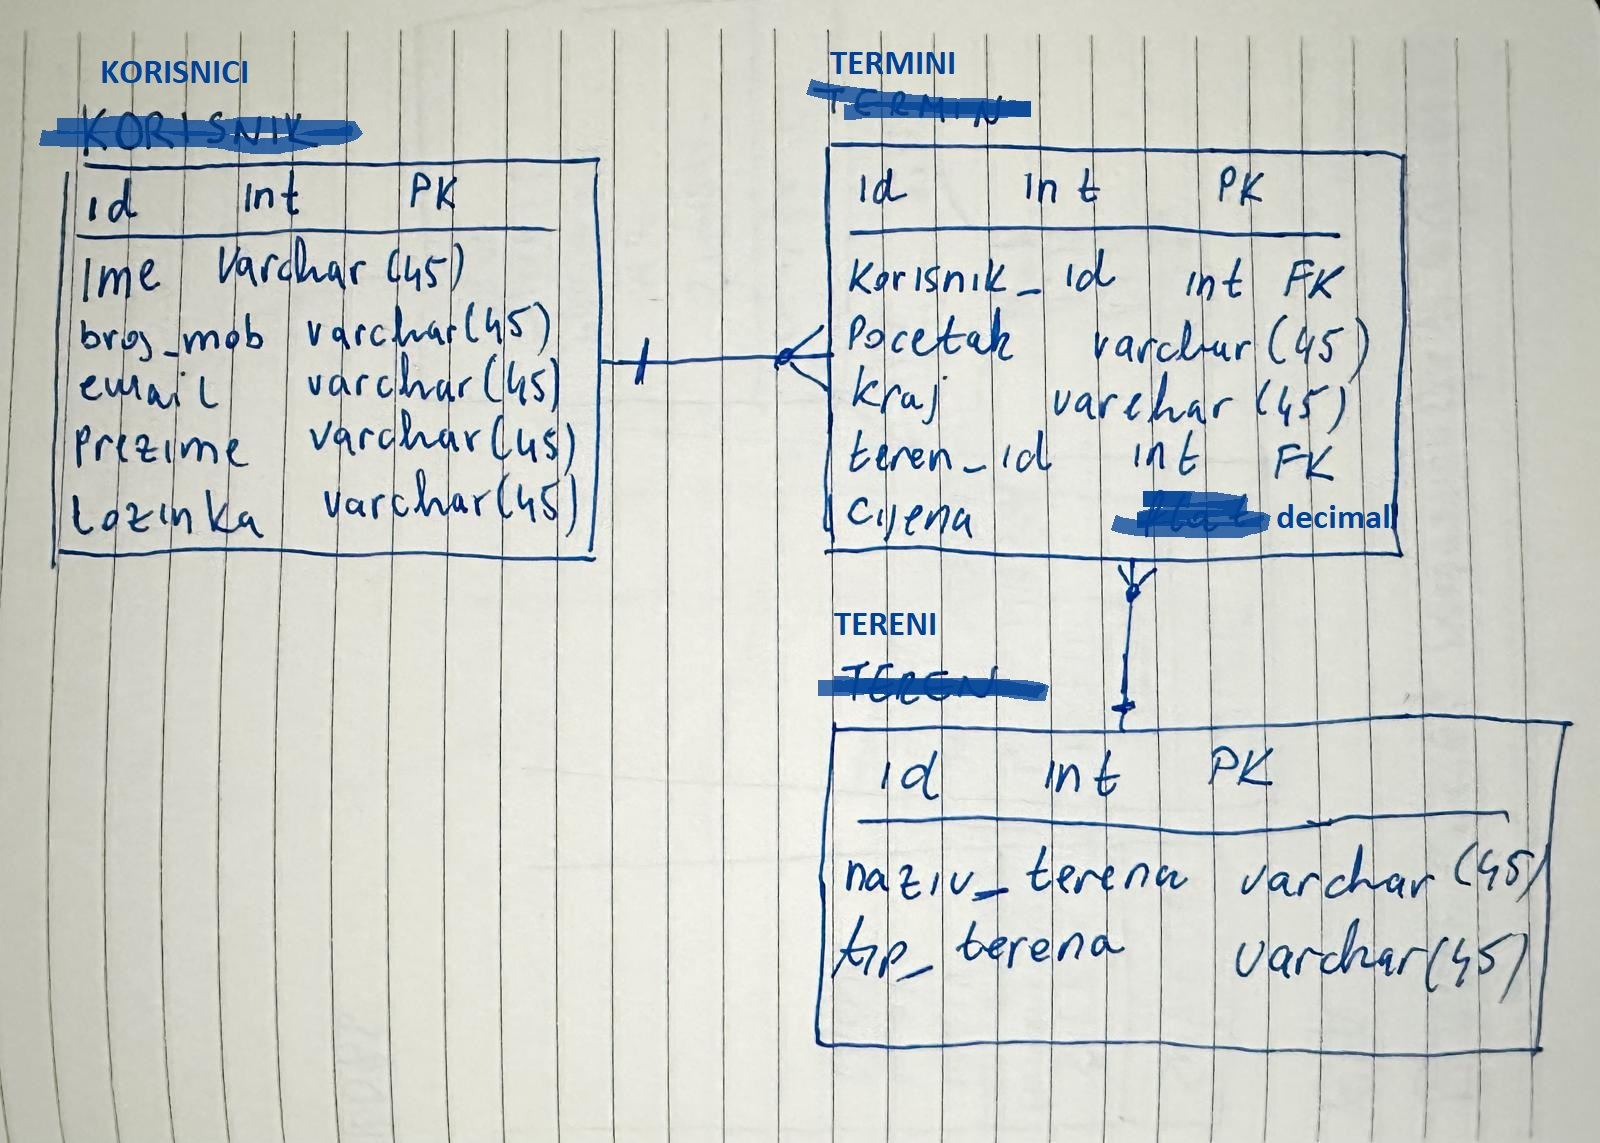 KORISNICI
KORISNIK
id int PK
Ime Varchar (45)
broj_mob varchar(45)
email varchar(45)
Prezime varchar(45)
Lozinka varchar(45)
TERMINI
TERMIN
id int PK
Korisnik_id int FK
Pocetak varchar (45)
Kraj varchar (45)
teren_id int FK
Cijena decimal
TERENI
TEREN
id int PK
naziv_terena varchar (45)
tip_terena varchar(45)